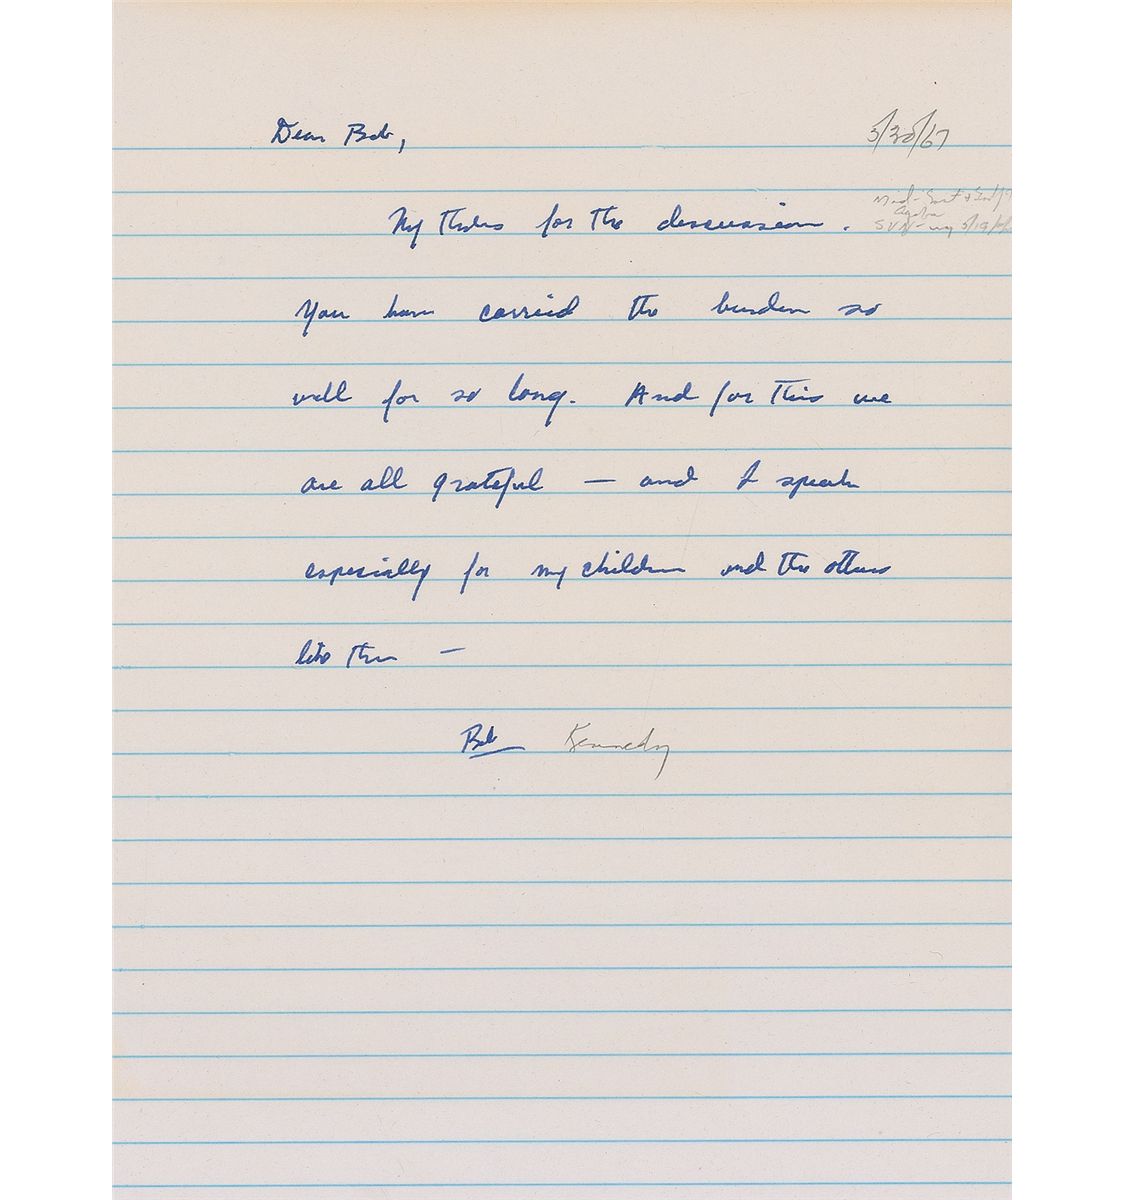 Dear Bob,
5/30/67
My thanks for the discussion.
You have carried the burden so
well for so long. And for this we
are all grateful — and I speak
especially for my children and the others
like them —
Bob Kennedy